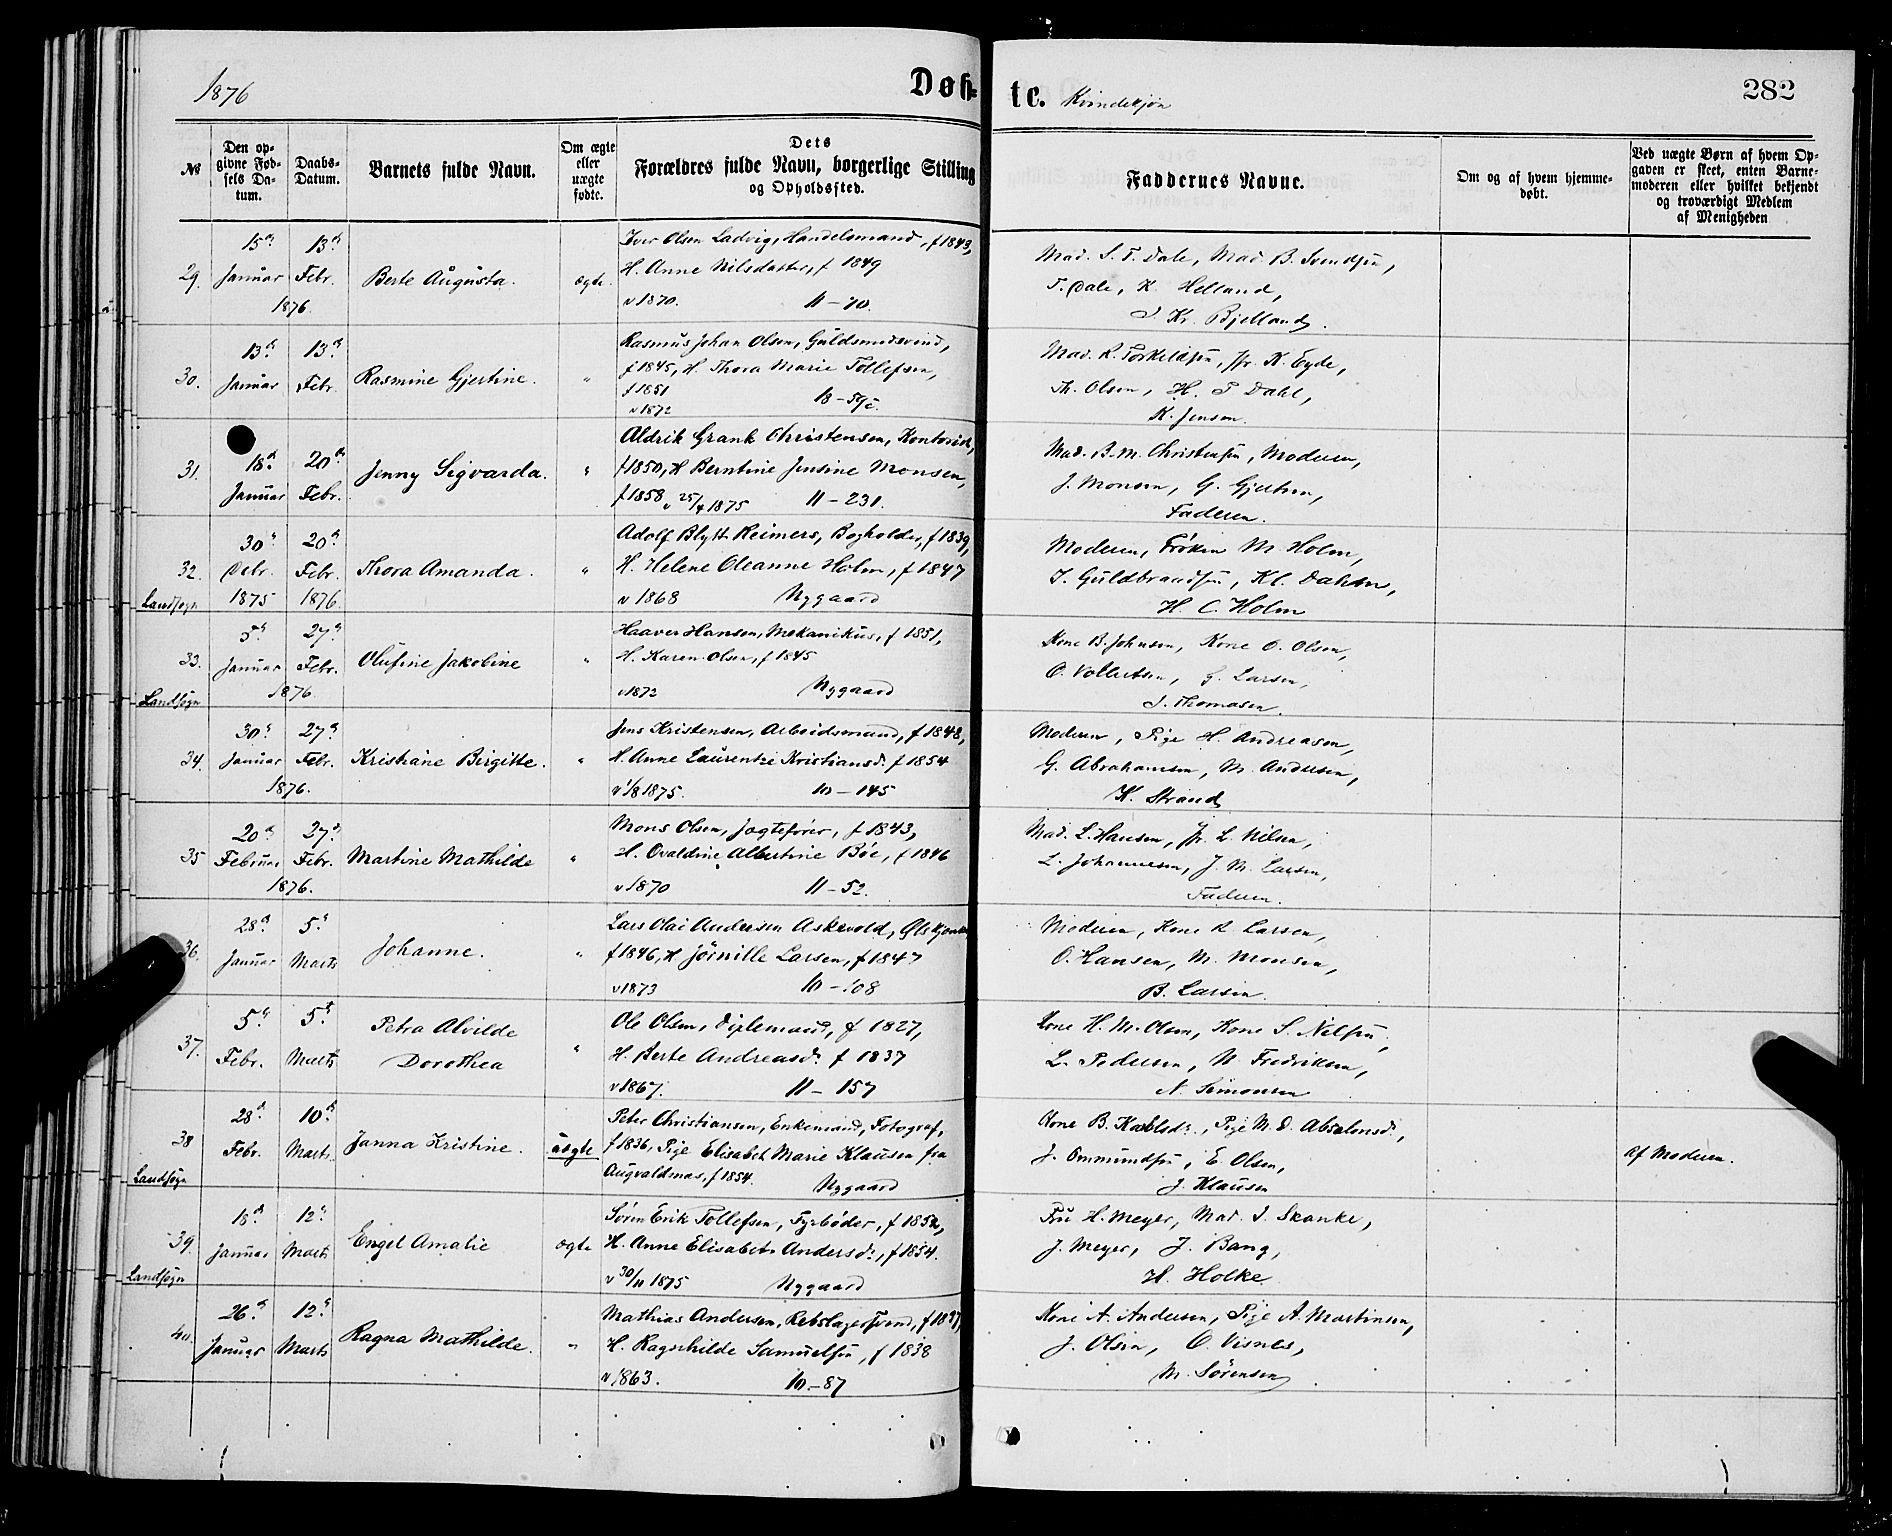 1876
Døb-
te. Kvindekjøn
282
No
Den opgivne Fødsels Datum.
Daabs-Datum.
Barnets fulde Navn.
Om ægte eller uægte fødte.
Dets Forældres fulde Navn, borgerlige Stilling og Opholdssted.
Faddernes Navne.
Om og af hvem hjemmedøbt.
Ved uægte Børn af hvem Opgaven er skeet, enten Barnemoderen eller hvilket bekjendt og troværdigt Medlem af Menigheden
29. 15d Januar 1876. 13d Febr. Berte Augusta. ægte.
Iver Olsen Ladvig, Handelsmand, f 1843,
H. Anne Nilsdatter, f 1849
v 1870. 11 – 70.
Mad. S. T. Dale, Mad. B. Svendsen,
T. Dale, K. Helland,
J. Kr. Bjelland.
30. 13d Januar 13d Febr. Rasmine Gjertine. "
Rasmus Johan Olsen, Guldsmedsvend,
f 1845, H. Thora Marie Tollefsen,
f 1851
v 1872 18 – 59c.
Mad. R. Torkeldsen, Jfr. K. Eyde,
Th. Olsen, H. T Dahl,
K. Jensen.
31. 18d Januar 20d Febr. Jenny Sigvarda. "
Aldrik Grank Christensen, Kontorist,
f 1850, H Berntine Jensine Monsen,
f 1858 v 25/4 1875 11 – 231.
Mad. B. M. Christensen, Moderen,
J. Monsen, G. Gjertsen,
Faderen.
32. Landsogn 30d Debr. 1875 20d Febr. 1876. Thora Amanda. "
Adolf Blytt Reimers, Bogholder, f 1839,
H. Helene Oleanne Holm, f 1847
v 1868 Nygaard
Moderen, Frøken M. Holm,
T. Guldbrandsen, Kl. Dahm,
H. C. Holm
33. Landsogn 5d Januar 27d Febr. 1876. Olufine Jakobine "
Haaver Hansen, Mekanikus, f 1851,
H. Karen Olsen, f 1845
v 1872 Nygaard
Kone B. Johnsen, Kone O. Olsen,
O. Vollertsen, G. Larsen,
J. Thomasen.
34. 30d Januar 27d Febr. 1876. Kristiane Birgitte. "
Jens Kristensen, Arbeidsmand, f 1848,
H. Anne Laurentze Kristiansd. f 1854
v 1/8 1875. 10 – 145
Moderen, Pige H. Andreasen,
G. Abrahamsen, M. Andersen,
K. Strand
35 20d Februar 27d Febr. 1876. Martine Mathilde "
Mons Olsen, Jagtefører, f 1843,
H. Ovaldine Albertine Bøe, f 1846
v 1870 11 – 52.
Mad. L. Hansen, Jfr. L. Nilsen,
L. Johannesen, J. M. Larsen,
Faderen.
36. 28d Januar 5d Marts Johanne. "
Lars Olai Andersen Askevold,
f 1846, H Jørnille Larsen, f 1847
v 1873 10 – 108
Moderen, Kone R. Larsen,
O. Hansen, M. Monsen,
B. Larsen.
37. 5d Febr. 5d Marts Petra Alvilde Dorothea "
Ole Olsen, f 1827,
H. Berte Andreasd. f 1837
v 1867. 11 – 157
Kone H. M. Olsen, Kone S. Nilsen,
L. Pedersen, N. Fredriksen,
N. Simonsen
38 Landsogn 28d Febr. 10d Marts. Janna Kristine. uægte
Peter Christiansen, Enkemand, Fotograf,
f 1836, Pige Elisabet Marie Klausen fra
Augvaldsnæs, f 1854. Nygaard
Kone B. Karlsd., Pige M. D. Absalonsd.,
J. Ommundsen, E. Olsen,
J. Klausen
Af Moderen.
39. Landsogn 18d Januar 12d Marts Engel Amalie ægte
Søren Erik Tollefsen, Fyrbøder, f 1852,
H. Anne Elisabet Andersd., f 1854.
v 30/11 1875 Nygaard
Fru H. Meyer, Mad. I. Skanke,
J. Meyer, J. Bang,
H. Holke
40. 26d Januar 12d Marts Ragna Mathilde. "
Mathias Andersen, Rebslagersvend, f 1837,
H. Ragnhilde Samuelsen, f 1838
v 1863. 10 – 87
Kone A. Andersen, Pige A. Martinsen,
J. Olsen, O. Visnes,
M. Sørensen